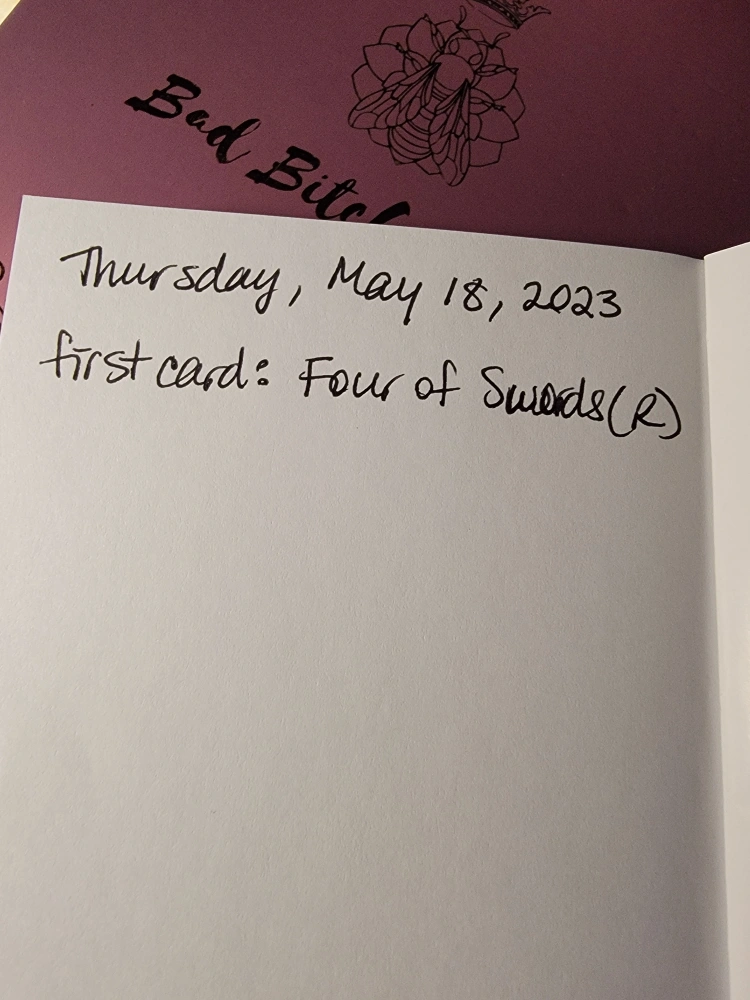 Bad
Thursday, May 18, 2023
first card: Four of Swords (R)